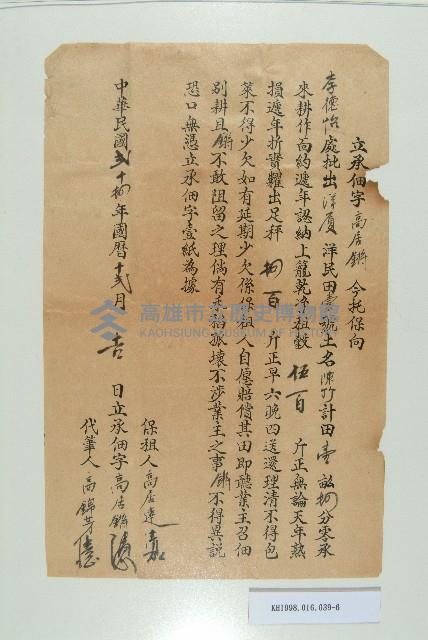 立承佃字高居鏘 今托保向
李德怡處批出洋厦洋民田壹號土名陳竹計田壹畝捌分零承
來耕作向約遞年認納上籠乾净租穀伍百斤正無論天年熟
損遞年折實糶出足秤捌百斤正早六晚四送還理清不得包
菜不得少欠如有延期少欠係保租人自愿賠償其田即聽業主召佃
别耕且鏘不敢阻留之理倘有
壞不涉業主之事鏘不得異説
恐口無憑立承佃字壹紙為據
中華民國弍十捌年國曆十弍月 吉 日立承佃字高居鏘
保租人高居連
代筆人高錦芳
高雄市立歷史博物館
KAOHSIUNG MUSEUM OF HISTORY
KH1998.016.039-6